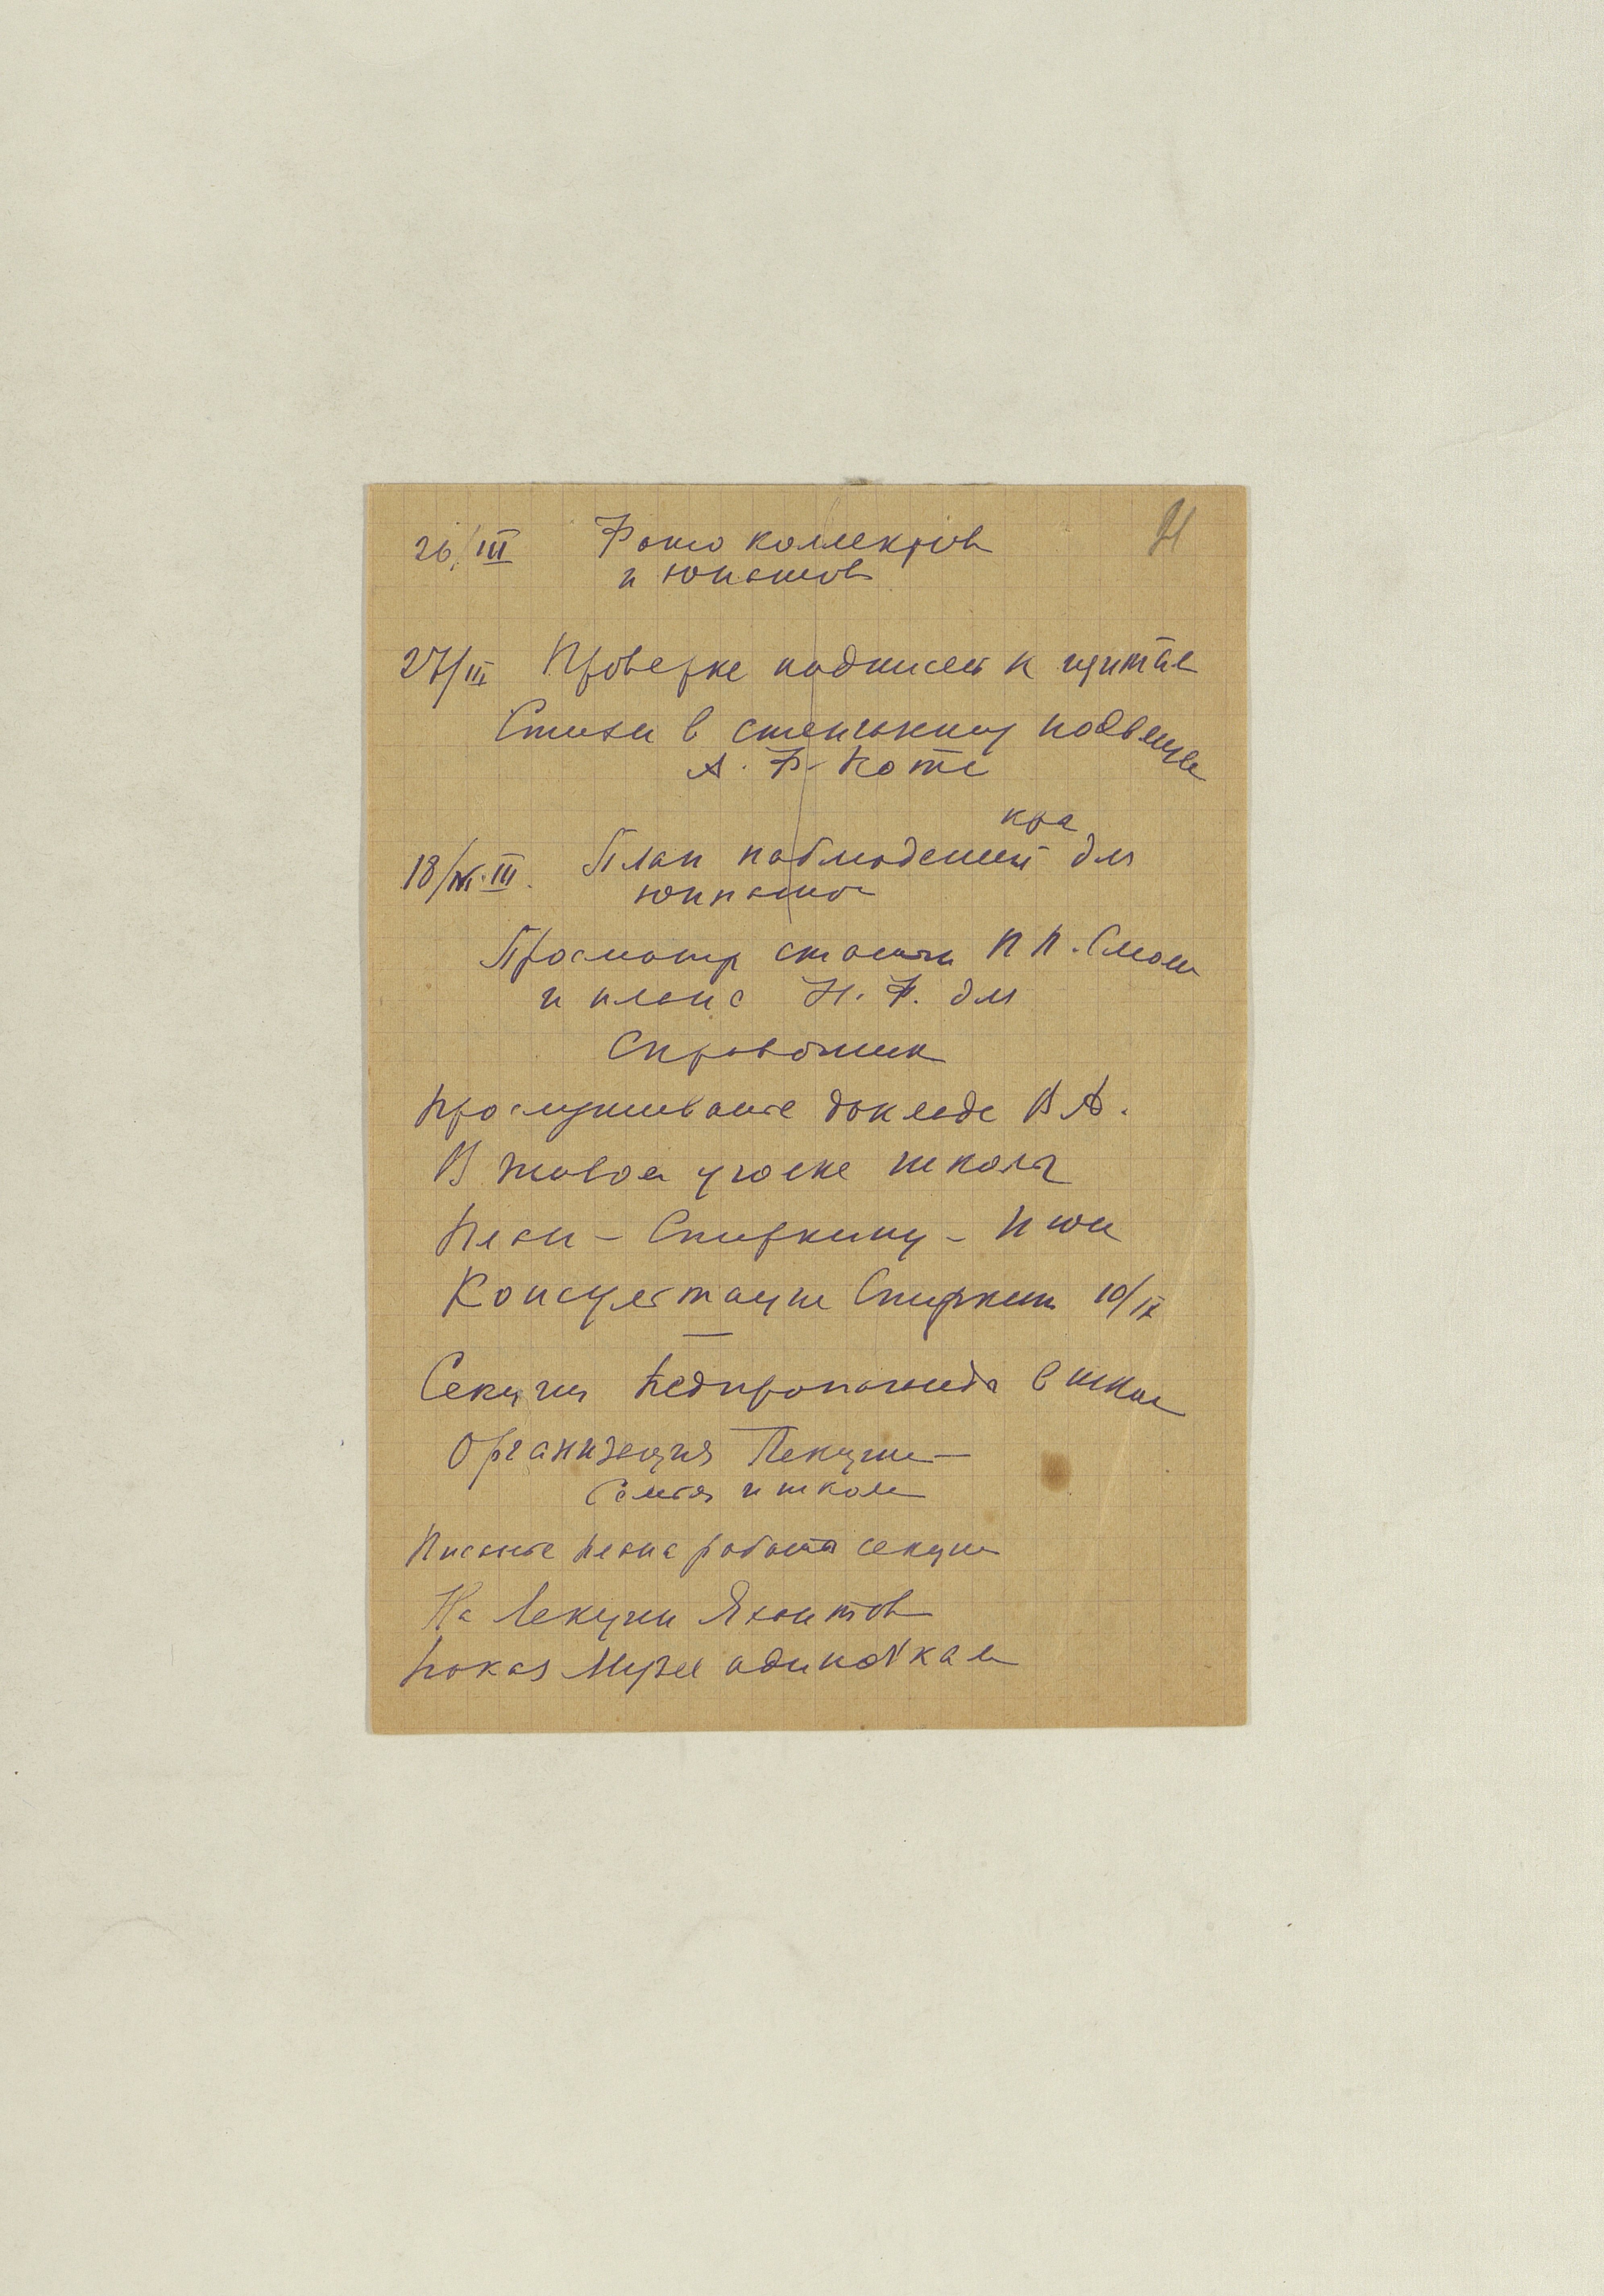 26/III Фото коллекров
21
и юнатов
27/III Проверке подписей к щитам
Стихи в стенгазету
А. Ф. Котс
кра
18/III. План наблюдений для
юннатов
Просмотр статьи П П. Смол
и плана Н. Ф. для
Справочник
Прослушивание доклада В А.
В живом уголке школы
План – Спиркину –
Консультации Спиркин 10/IX
Секции Педпропаганда в школ
Организация Лекции –
Семья и школа
Писание плана работы секции
На Лекции Яхонтов
Показ Музея одиночкам